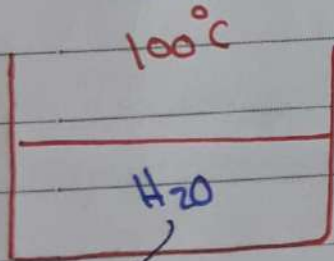 100°C
H2O